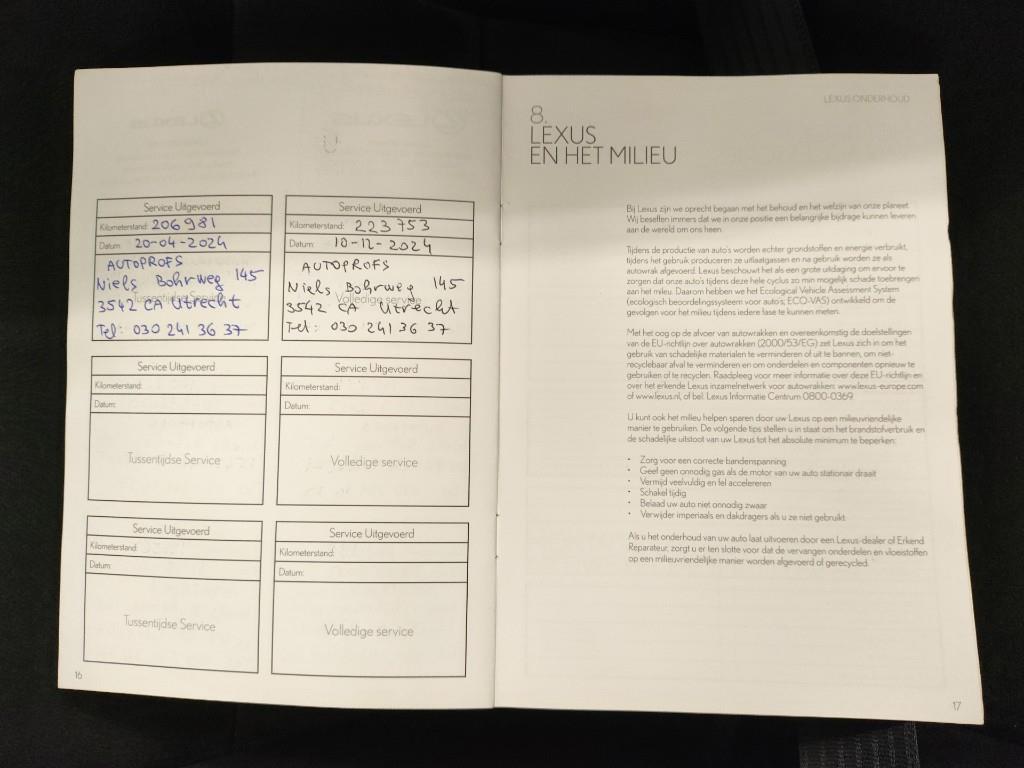 Service Uitgevoerd
Kilometerstand: 206981
Datum: 20-04-2024
AUTOPROFS
Niels Bohrweg 145
Tussentijdse Service
3542 CA Utrecht
Tel: 030 241 36 37
Service Uitgevoerd
Kilometerstand: 223753
Datum: 10-12-2024
AUTOPROFS
Niels Bohrweg 145
Volledige service
3542 CA Utrecht
Tel: 030 241 36 37
Service Uitgevoerd
Kilometerstand:
Datum:
Tussentijdse Service
Service Uitgevoerd
Kilometerstand:
Datum:
Volledige service
Service Uitgevoerd
Kilometerstand:
Datum:
Tussentijdse Service
Service Uitgevoerd
Kilometerstand:
Datum:
Volledige service
16
LEXUS ONDERHOUD
8.
LEXUS
EN HET MILIEU
Bij Lexus zijn we oprecht begaan met het behoud en het welzijn van onze planeet.
Wij beseffen immers dat we in onze positie een belangrijke bijdrage kunnen leveren
aan de wereld om ons heen.
Tijdens de productie van auto's worden echter grondstoffen en energie verbruikt,
tijdens het gebruik produceren ze uitlaatgassen en na gebruik worden ze als
autowrak afgevoerd. Lexus beschouwt het als een grote uitdaging om ervoor te
zorgen dat onze auto's tijdens deze hele cyclus zo min mogelijk schade toebrengen
aan het milieu. Daarom hebben we het Ecological Vehicle Assessment System
(ecologisch beoordelingssysteem voor auto's; ECO-VAS) ontwikkeld om de
gevolgen voor het milieu tijdens iedere fase te kunnen meten.
Met het oog op de afvoer van autowrakken en overeenkomstig de doelstellingen
van de EU-richtlijn over autowrakken (2000/53/EG) zet Lexus zich in om het
gebruik van schadelijke materialen te verminderen of uit te bannen, om niet-
recyclebaar afval te verminderen en om onderdelen en componenten opnieuw te
gebruiken of te recyclen. Raadpleeg voor meer informatie over deze EU-richtlijn en
over het erkende Lexus inzamelnetwerk voor autowrakken: www.lexus-europe.com
of www.lexus.nl, of bel: Lexus Informatie Centrum 0800-0369
U kunt ook het milieu helpen sparen door uw Lexus op een milieuvriendelijke
manier te gebruiken. De volgende tips stellen u in staat om het brandstofverbruik en
de schadelijke uitstoot van uw Lexus tot het absolute minimum te beperken:
• Zorg voor een correcte bandenspanning
• Geef geen onnodig gas als de motor van uw auto stationair draait
• Vermijd veelvuldig en fel accelereren
• Schakel tijdig
• Belaad uw auto niet onnodig zwaar
• Verwijder imperiaals en dakdragers als u ze niet gebruikt
Als u het onderhoud van uw auto laat uitvoeren door een Lexus-dealer of Erkend
Reparateur, zorgt u er ten slotte voor dat de vervangen onderdelen en vloeistoffen
op een milieuvriendelijke manier worden afgevoerd of gerecycled.
17